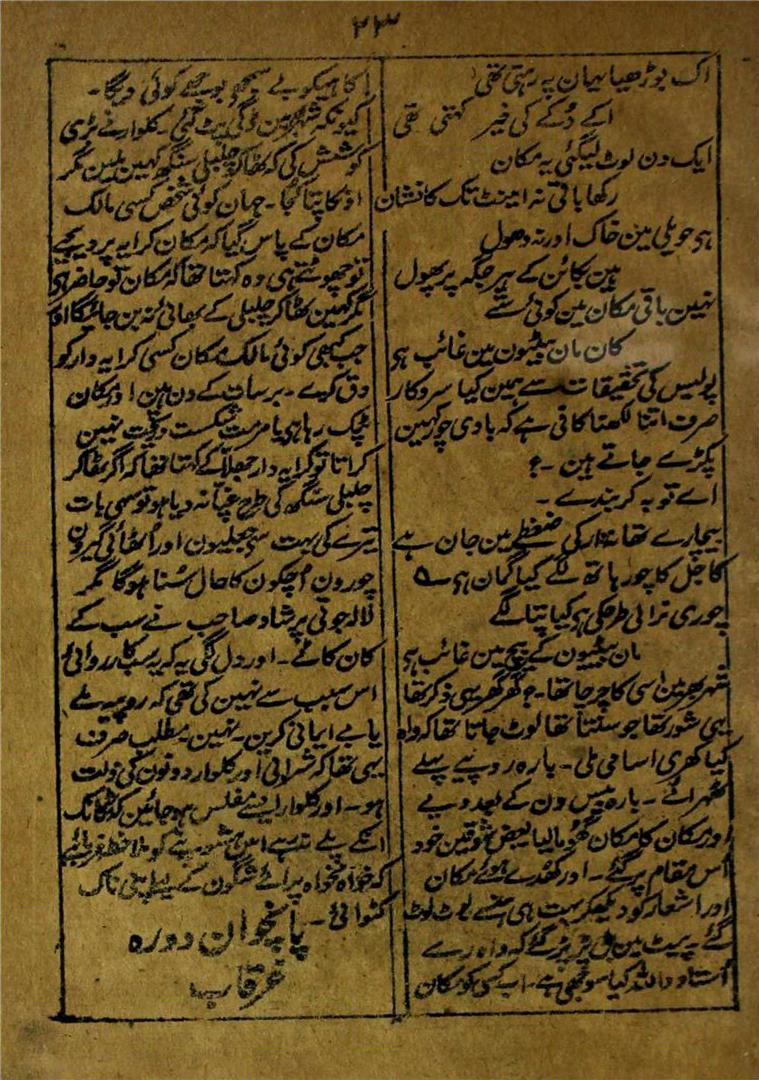 ۲۳
اک بوڑھیا یہان پہ رہتی تھی
اکے دُکے کی خیر کہتی تھی
ایک دن لوٹ لیگئی یہ مکان
رکھا باقی نہ اینٹ تک کا نشان
ہی حویلی مین خاک اور نہ دھول
ہین بکائن کے ہر جگہ پر پھول
نہین باقی مکان مین کوئی شے
کان مان ہیٹیون مین غائب ہی
پولیس کی تحقیقات سے ہمین کیا سروکار
صرف اتنا لکھنا کافی ہے کہ بادی چور کہین
پکڑے جاتے ہین ۔؟
اے توبہ کر بندے ۔
بیچارے تھانہ دار کی ضغطے مین جان ہے
کاجل کا چور ہاتھ لگے کیا گمان ہی
چوری نرالی طرحکی ہی کیا پتا لگے
مان ہیٹیون کے بیچ مین غائب ہی
شہر بھر مین اسی کا چرچا تھا ۔ گھر گھر یہی ذکر تھا
یہی شور تھا جو سنتا تھا لوٹ جاتا تھا کہ واہ
کیا کھری اسامی ملی ۔ بارہ روپیے پہلے
ٹھہرائے ۔ بارہ بیس دن کے بعد دیے
اور مکان کا مکان کھُدوا لیا بعض شوقین خود
اُس مقام پر گئے ۔ اور کھُدے ہوئے مکان
اور اشعار کو دیکھکر بہت ہی ہنسے لوٹ لوٹ
گئے پیٹ مین بل پڑ پڑ گئے کہ واہ رے
اُستاد واللہ کیا سوجھی ہے ۔ اب کسی کو مکان
کاہیکو بے سمجھے بوجھے کوئی دیگا ۔
کیونکہ شہر مین ڈگی پٹ گئی ۔ کلوار نے بڑی
کوشش کی کہ ٹھاکر چلبلی سنگھ کہین ملین مگر
اونکا پتا کُجا ۔ جہان کوئی شخص کسی مالک
مکان کے پاس گیا کہ مکان کرایہ پر دیجیے
تو چھوٹتے ہی وہ کہتا تھا کہ مکان تو حاضر ہی
مگر کہین ٹھاکر چلبلی کے بھائی نہ بن جائیگا اور
جب کبھی کوئی مالک مکان کسی کرایہ دار کو
دق کرے ۔ برسات کے دن ہین اور مکان
ٹپک رہا ہی یا مرمت شکست و ریخت نہین
کراتا تو کرایہ دار جھلّا کے کہتا تھا کہ اگر ٹھاکر
چلبلی سنگھ کی طرح غچّا نہ دیا ہو تو سہی بات
تیرے کی بہت سے جعلیون اور اُٹھائی گیرون
چورون اُچکون کا حال سُنا ہوگا مگر
لالہ جوتی پرشاد صاحب نے سب کے
کان کاٹے ۔ اور دل لگی یہ کہ یہ سب کارروائی
اس سبب سے نہین کی تھی کہ روپیہ ملے
یا بے ایمانی کرین ۔ نہین ۔ مطلب صرف
یہی تھا کہ شرابی اور کلوار دونون کی ذلت
ہو ۔ اور کلوار ایسے مفلس ہو جائین کہ ٹکا تک
انکے پلے نہ رہے اس شہدپنے کو ملاحظہ فرمائیے
کہ خواہ نخواہ پرائے شگون کے لیے اپنی ناک
کٹوائی ۔
پانچوان دورہ
غرقاب